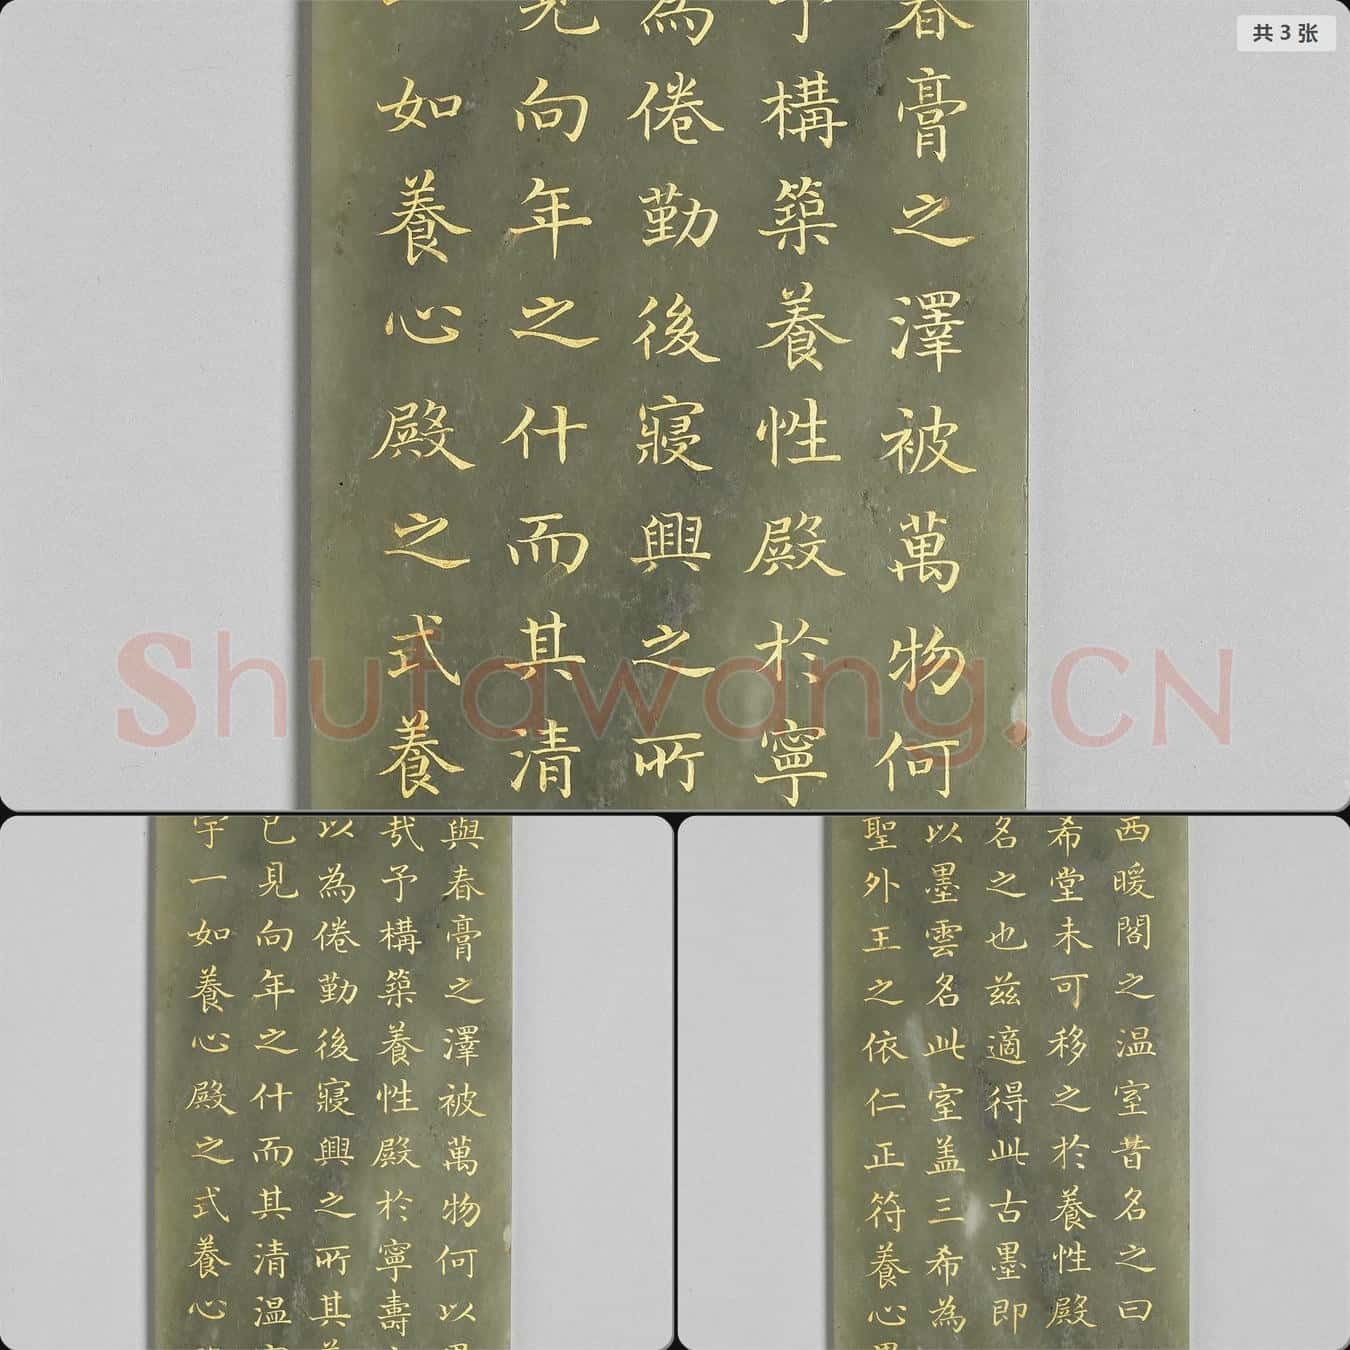 共3张
春膏之澤被萬物何
予構築養性殿於寧
為倦勤後寢興之所
見向年之什而其清
一如養心殿之式養
Shufawang.CN
與春膏之澤被萬物何以
哉予構築養性殿於寧壽
以為倦勤後寢興之所其
已見向年之什而其清温
宇一如養心殿之式養心
西暖閣之温室昔名之曰
希堂未可移之於養性殿
名之也兹適得此古墨即
以墨雲名此室盖三希為
聖外王之依仁正符養心